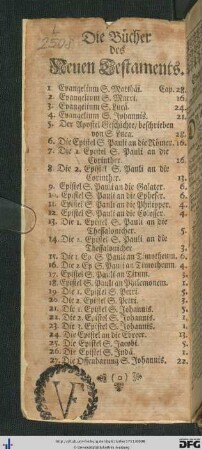 2508
Die Bücher
des
Neuen Testaments.
1. Evangelium S. Matthäi. Cap. 28.
2. Evangelium S. Marci. 16.
3. Evangelium S. Lucä. 24.
4. Evangelium S. Johannis. 21.
5. Der Apostel Geschichte, beschrieben
von S. Luca. 28.
6. Die Epistel S. Pauli an die Römer. 16.
7. Die 1. Epistel S. Pauli an die
Corinther. 16.
8. Die 2. Epistel S. Pauli an die
Corinther. 13.
9. Epistel S. Pauli an die Galater. 6.
10. Epistel S. Pauli an die Epheser. 6.
11. Epistel S. Pauli an die Philipper. 4.
12. Epistel S. Pauli an die Colosser. 4.
13. Die 1. Epistel S. Pauli an die
Thessalonicher. 5.
14. Die 2. Epistel S. Pauli an die
Thessalonicher 3.
15. Die 1 Ep. S. Pauli an Timotheum. 6.
16. Die 2 Ep. S. Pauli an Timotheum. 4.
17. Epistel S. Pauli an Titum. 3.
18. Epistel S. Pauli an Philemonem. 1.
19. Die 1. Epistel S. Petri. 5.
20. Die 2. Epistel S. Petri. 3.
21. Die 1. Epistel S. Johannis. 5.
22. Die 2. Epistel S. Johannis. 1.
23. Die 3. Epistel S. Johannis. 1.
24. Die Epistel an die Ebreer. 13.
25. Die Epistel S. Jacobi. 5.
26. Die Epistel S. Judä. 1.
27. Die Offenbarung S. Johannis. 22.
( o )
DFG